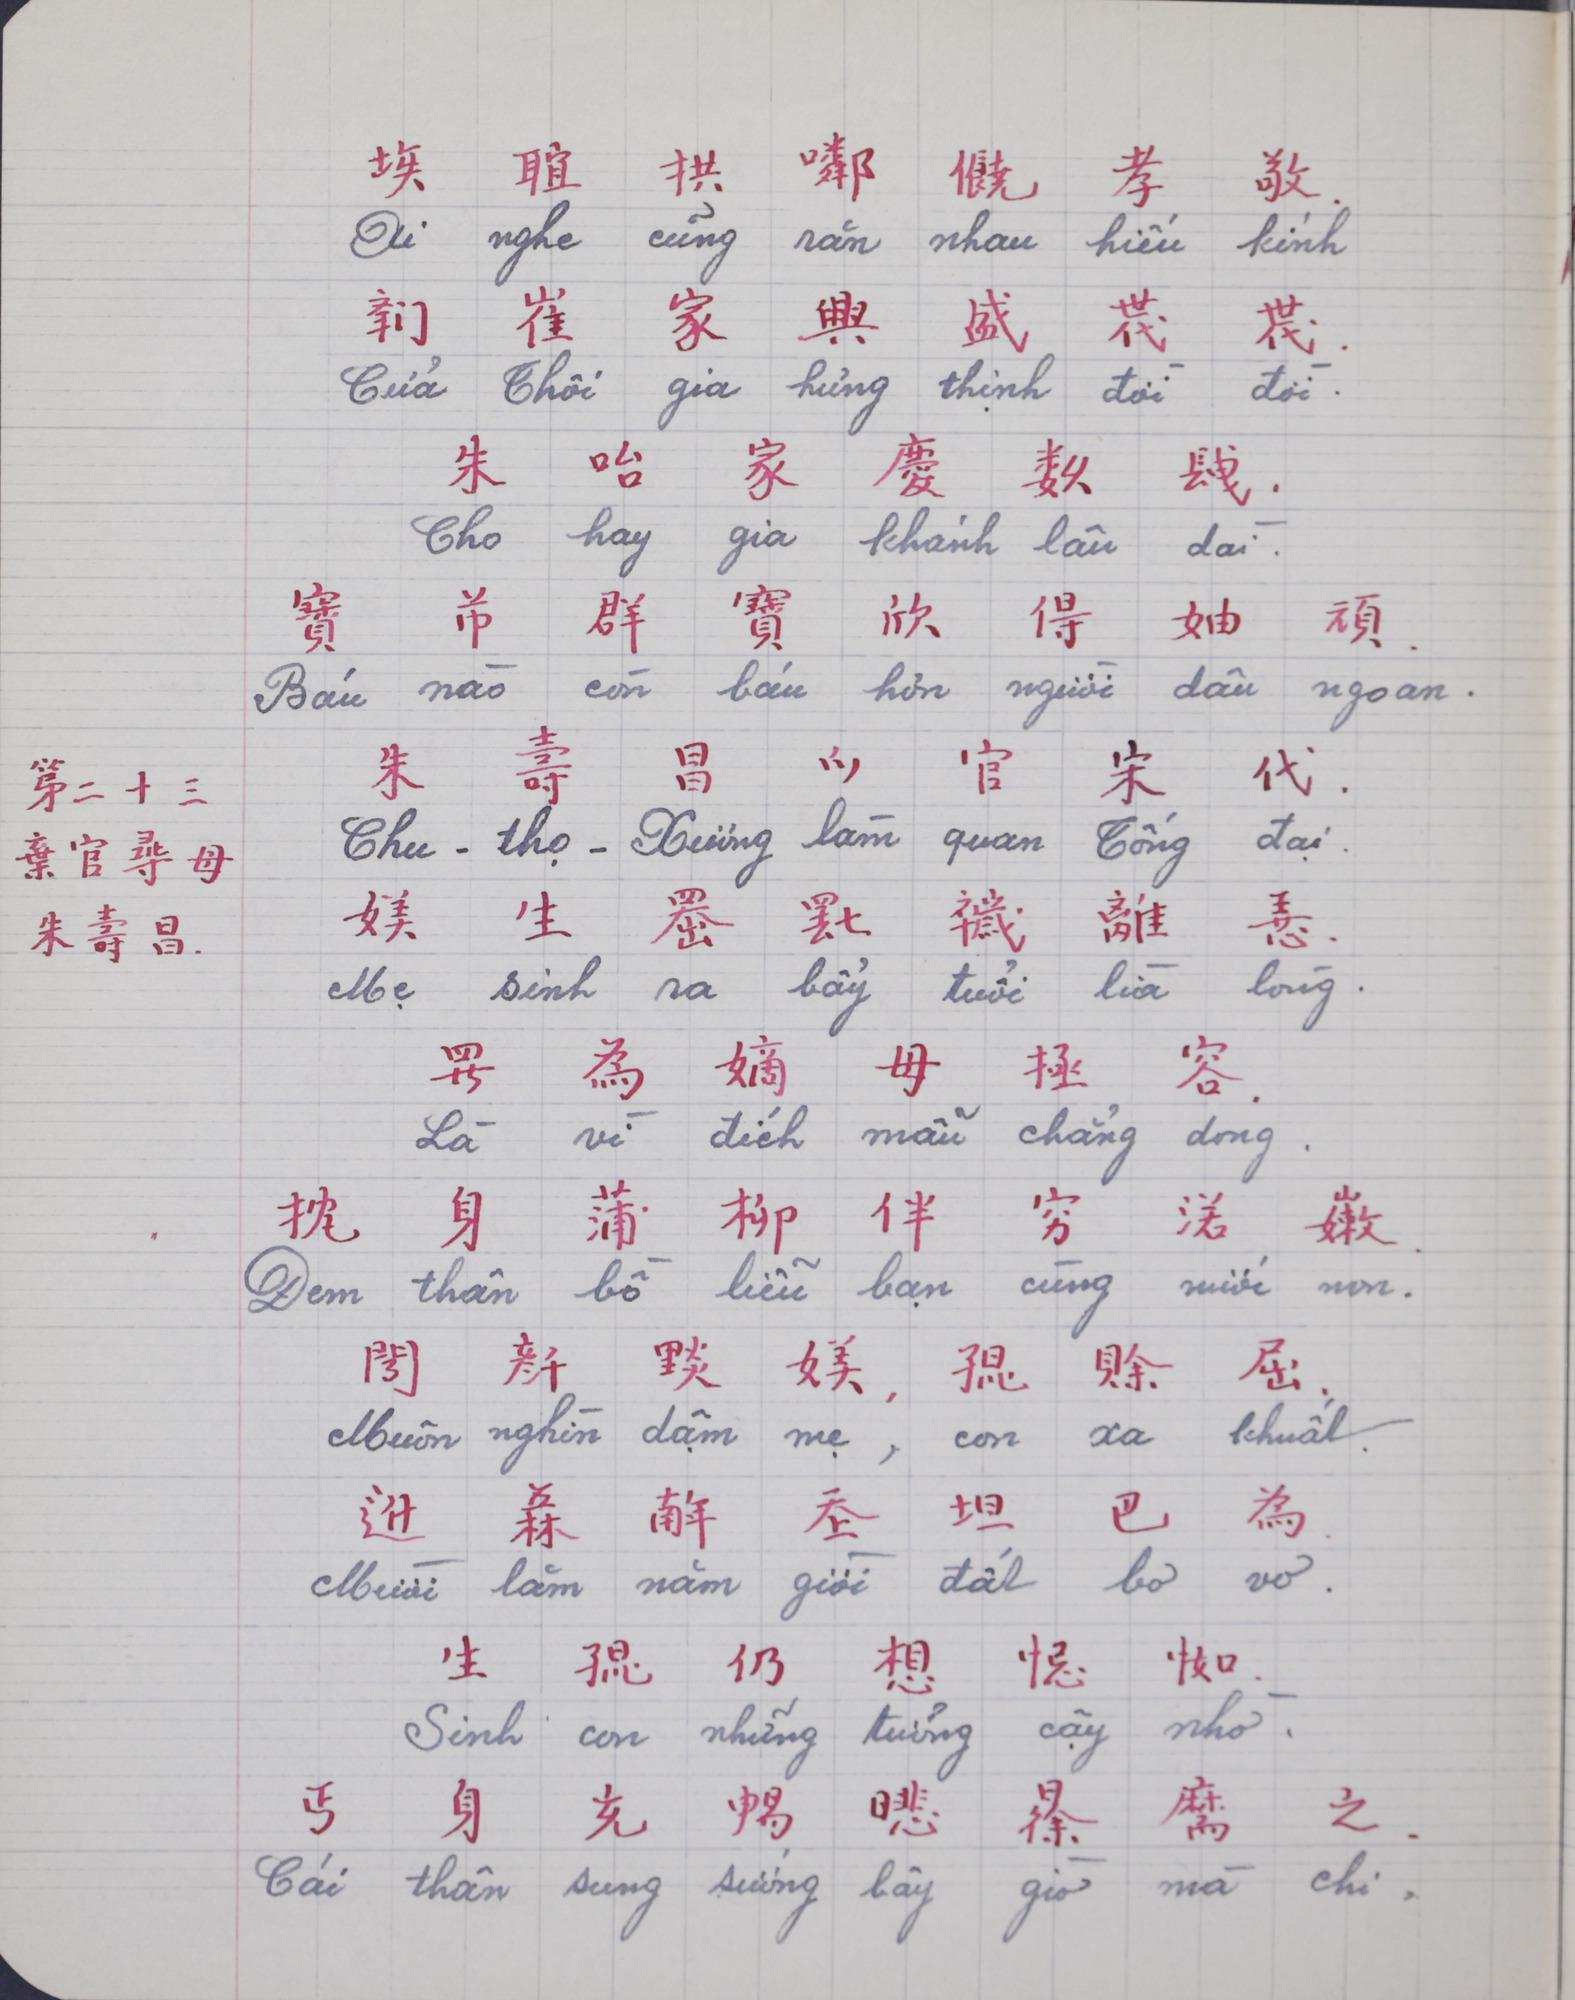 埃 𦖑 拱 𠴍 饒 孝 敬.
Ai nghe cũng răn nhau hiếu kính
𧶮 崔 家 興 盛 𠁀 𠁀.
Cửa Thôi gia hưng thịnh đời đời.
朱 咍 家 慶 数 𨱽.
Cho hay gia khánh lâu dài.
寶 芇 群 寶 欣 得 妯 頑.
Báu nào còn báu hơn người dâu ngoan.
第二十三
棄官尋母
朱壽昌.
朱 壽 昌 𫜵 官 宋 代.
Chu - thọ - Xương làm quan Tống đại.
媄 生 𠚢 𦉱 𢆫 離 𢚸.
Mẹ sinh ra bẩy tuổi lìa lòng.
羅 為 嫡 母 拯 容.
Là vì đích mẫu chẳng dong.
抌 身 蒲 柳 伴 穷 渃 𡽫.
Đem thân bồ liễu bạn cùng nước non.
閍 𠦳 𨤮 媄, 𡥵 賒 屈.
Muôn nghìn dậm mẹ, con xa khuất.
𨒒 𠄻 𢆥 𡗶 坦 巴 為.
Mười lăm năm giời đất bơ vơ.
生 𡥵 仍 想 忌 㤇.
Sinh con những tưởng cậy nhờ.
丐 身 充 暢 𣊾 𣇞 麻 之.
Cái thân sung sướng bây giờ mà chi.